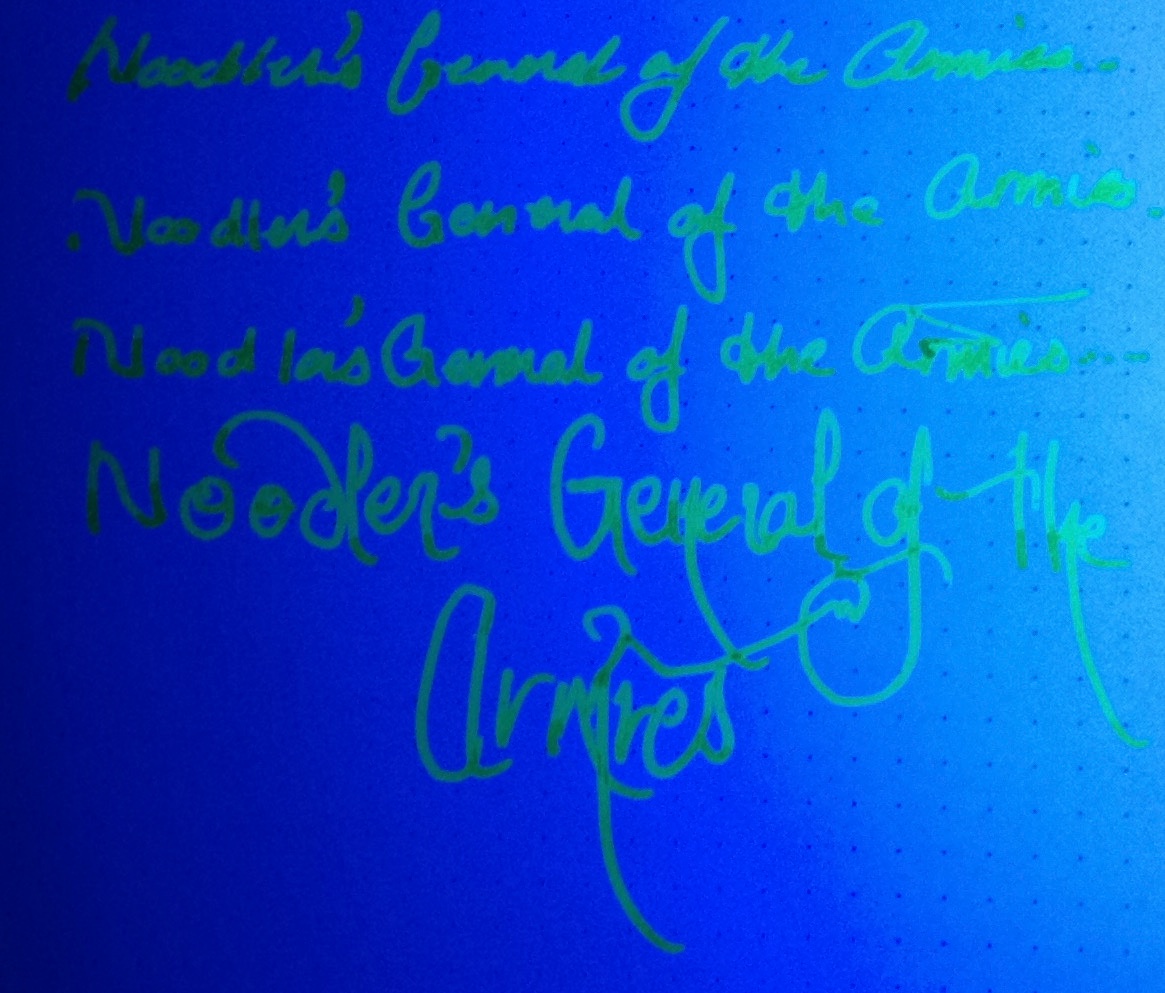 Noodler's General of the Armies..
Noodler's General of the Armies.
Noodler's General of the Armies---
Noodler's General of the
Armies